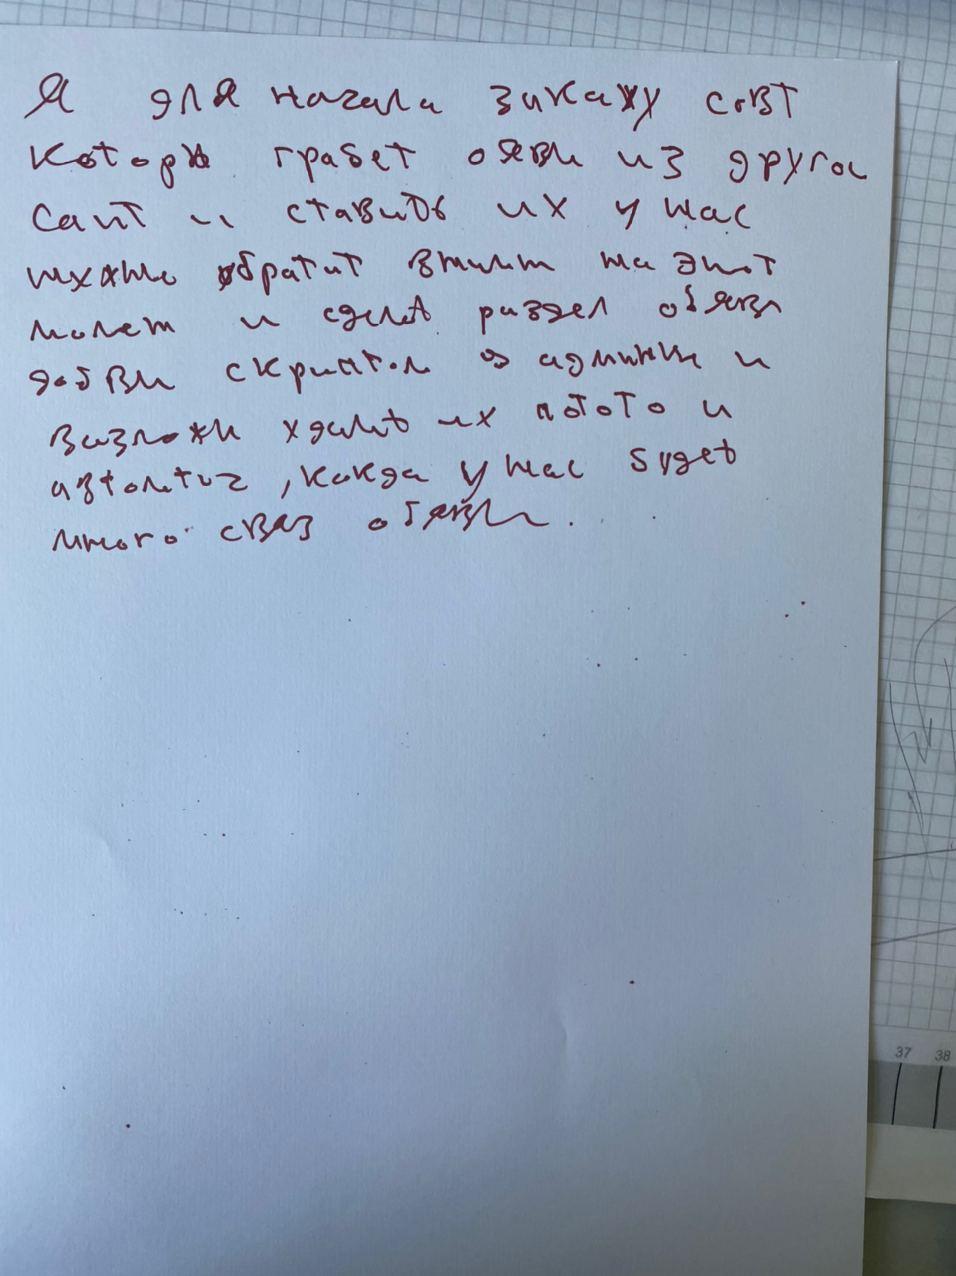 Я для начала закажу совт
которы грабет обявл из другои
саит и ставить их у нас
нужно обратит вним на этот
момент и сделат раздел обявл
добвл скриптом в админке и
возможн удалит их потото и
автоматич, когда у нас будет
много сваз обявл.
37 38